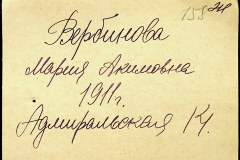 155
Вербинова
Мария Акимовна
1911г.
Адмиральская 14.